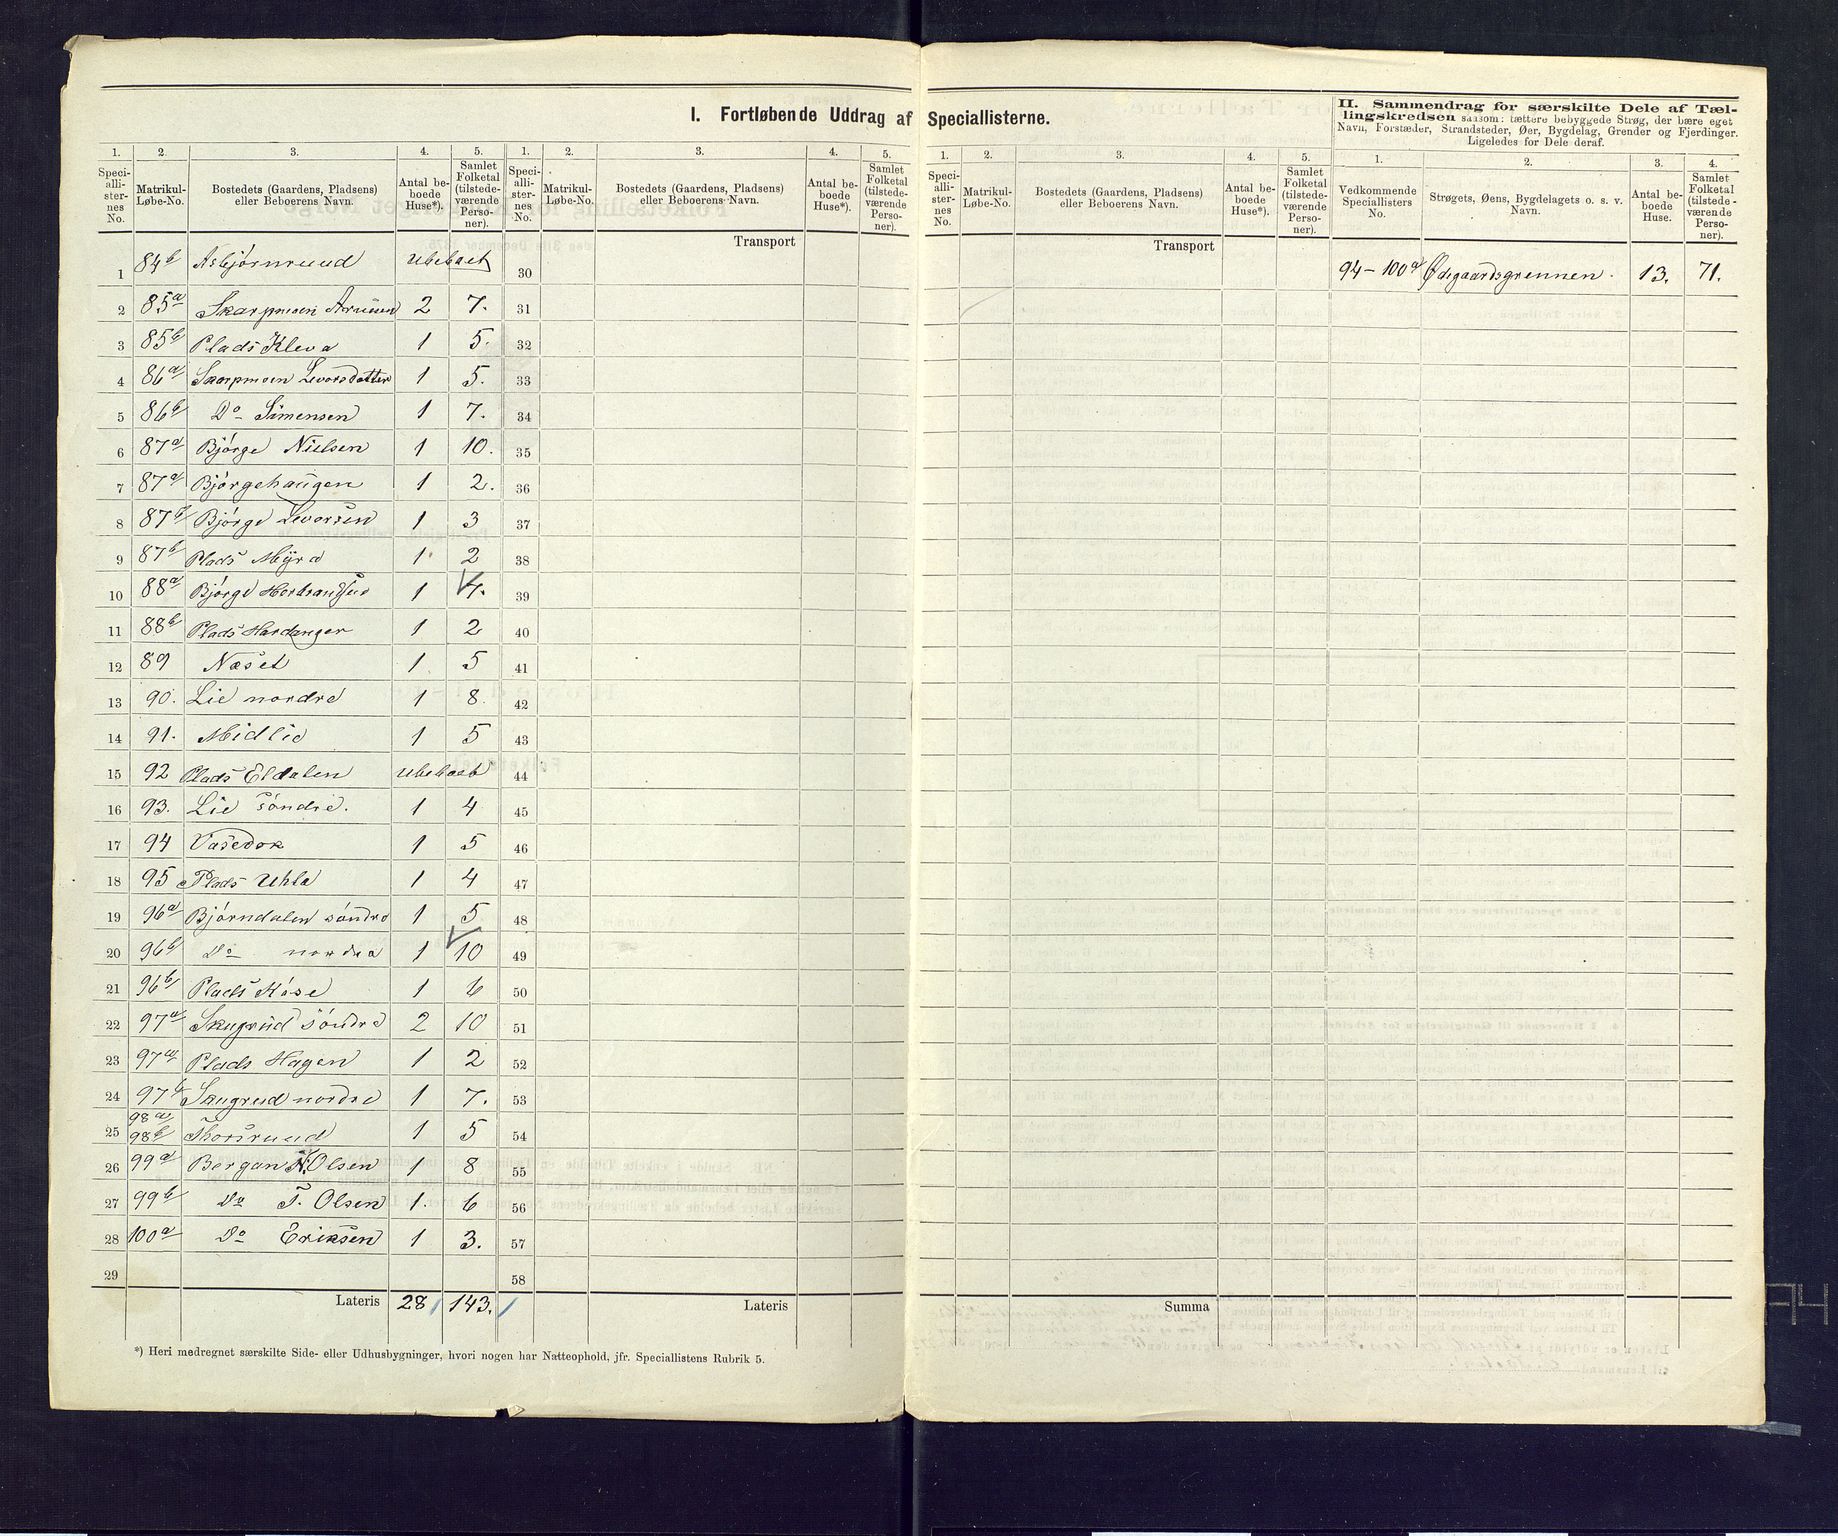 I. Fortløbende Uddrag af Speciallisterne.
II. Sammendrag for særskilte Dele af Tæl-
lingskredsen saasom: tættere bebyggede Strøg, der bære eget
Navn, Forstæder, Strandsteder, Øer, Bygdelag, Grender og Fjerdinger.
Ligeledes for Dele deraf.
1. Speciallisternes No. 2. Matrikul-Løbe-No. 3. Bostedets (Gaardens, Pladsens) eller Beboerens Navn. 4. Antal beboede Huse*). 5. Samlet Folketal (tilstedeværende Personer).
1. Speciallisternes No. 2. Matrikul-Løbe-No. 3. Bostedets (Gaardens, Pladsens) eller Beboerens Navn. 4. Antal beboede Huse*). 5. Samlet Folketal (tilstedeværende Personer).
1. Speciallisternes No. 2. Matrikul-Løbe-No. 3. Bostedets (Gaardens, Pladsens) eller Beboerens Navn. 4. Antal beboede Huse*). 5. Samlet Folketal (tilstedeværende Personer).
1. Vedkommende Speciallisters No. 2. Strøgets, Øens, Bygdelagets o. s. v. Navn. 3. Antal beboede Huse. 4. Samlet Folketal (tilstedeværende Personer).
Transport Transport
1 84b Asbjörnruud Ubeboet 30 94-100a Ødegaardsgrennen. 13. 71.
2 85a Skarpmoen 2 7. 31
3 85b Plads Kleva 1 5. 32
4 86a Skarpmoen Levorsdatter 1 5. 33
5 86b Do Simensen 1 7. 34
6 87a Bjórge Nielsen 1 10. 35
7 87a Bjórgehaugen 1 2. 36
8 87b Bjórge Levorsen 1 3 37
9 87b Plads Myra 1 2 38
10 88a Bjórge 1 4. 39
11 88b Plads Hardanger 1 2 40
12 89 Næset 1 5 41
13 90. Lie nordre 1 8. 42
14 91. Midlie 1 5 43
15 92 Plads Eldalen Ubeboet 44
16 93. Lie söndre. 1 4 45
17 94 Vasedok 1 5 46
18 95 Plads Uhla 1 4 47
19 96a Bjórndalen söndre 1 5 48
20 96b Do nordre 1 10 49
21 96b Plads Kóse 1 6 50
22 97a Skugrud söndre 2 10 51
23 97a Plads Hagen 1 2 52
24 97b Skugrud nordre 1 7. 53
25 98a 98b Thorsruud 1 5 54
26 99a Bergan N. Olsen 1 8 55
27 99b Do T. Olsen 1. 6 56
28 100a Do Eriksen 1 3. 57
29 58
Lateris 28 143. Lateris Summa
*) Heri medregnet særskilte Side- eller Udhusbygninger, hvori nogen har Natteophold, jfr. Speciallistens Rubrik 5.